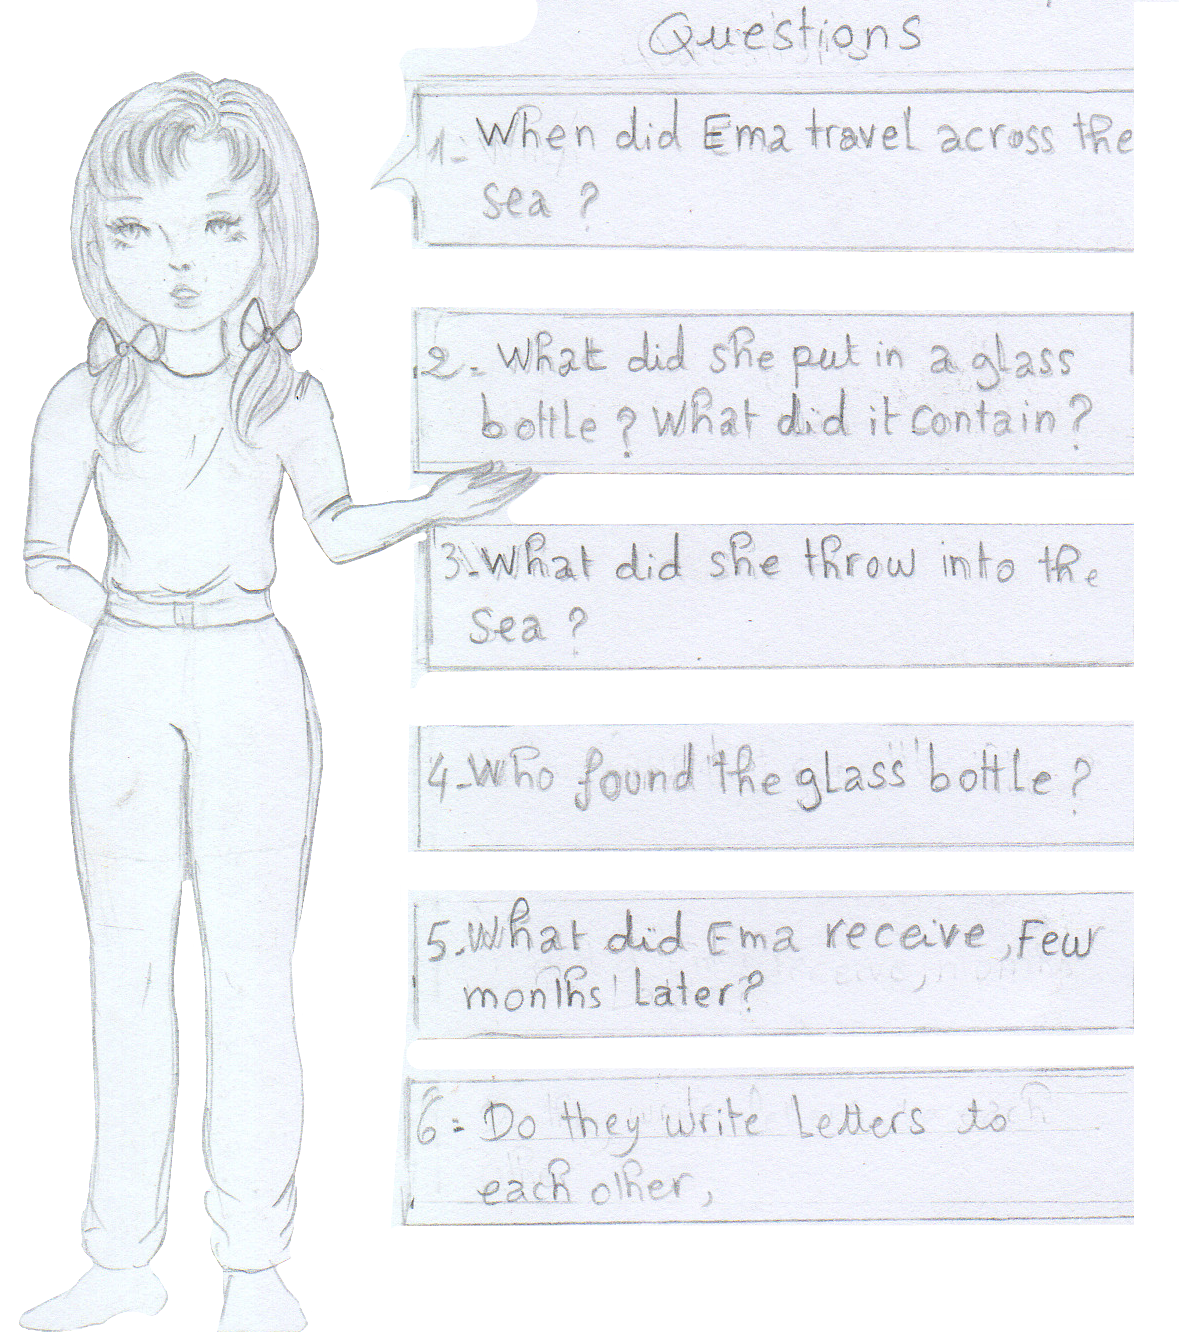 Questions
1- When did Ema travel across the
sea ?
2- What did she put in a glass
bottle ? What did it contain ?
3-What did she throw into the
sea ?
4-Who found the glass bottle ?
5-What did Ema receive, Few
months Later?
6- Do they write Letters to
each other,